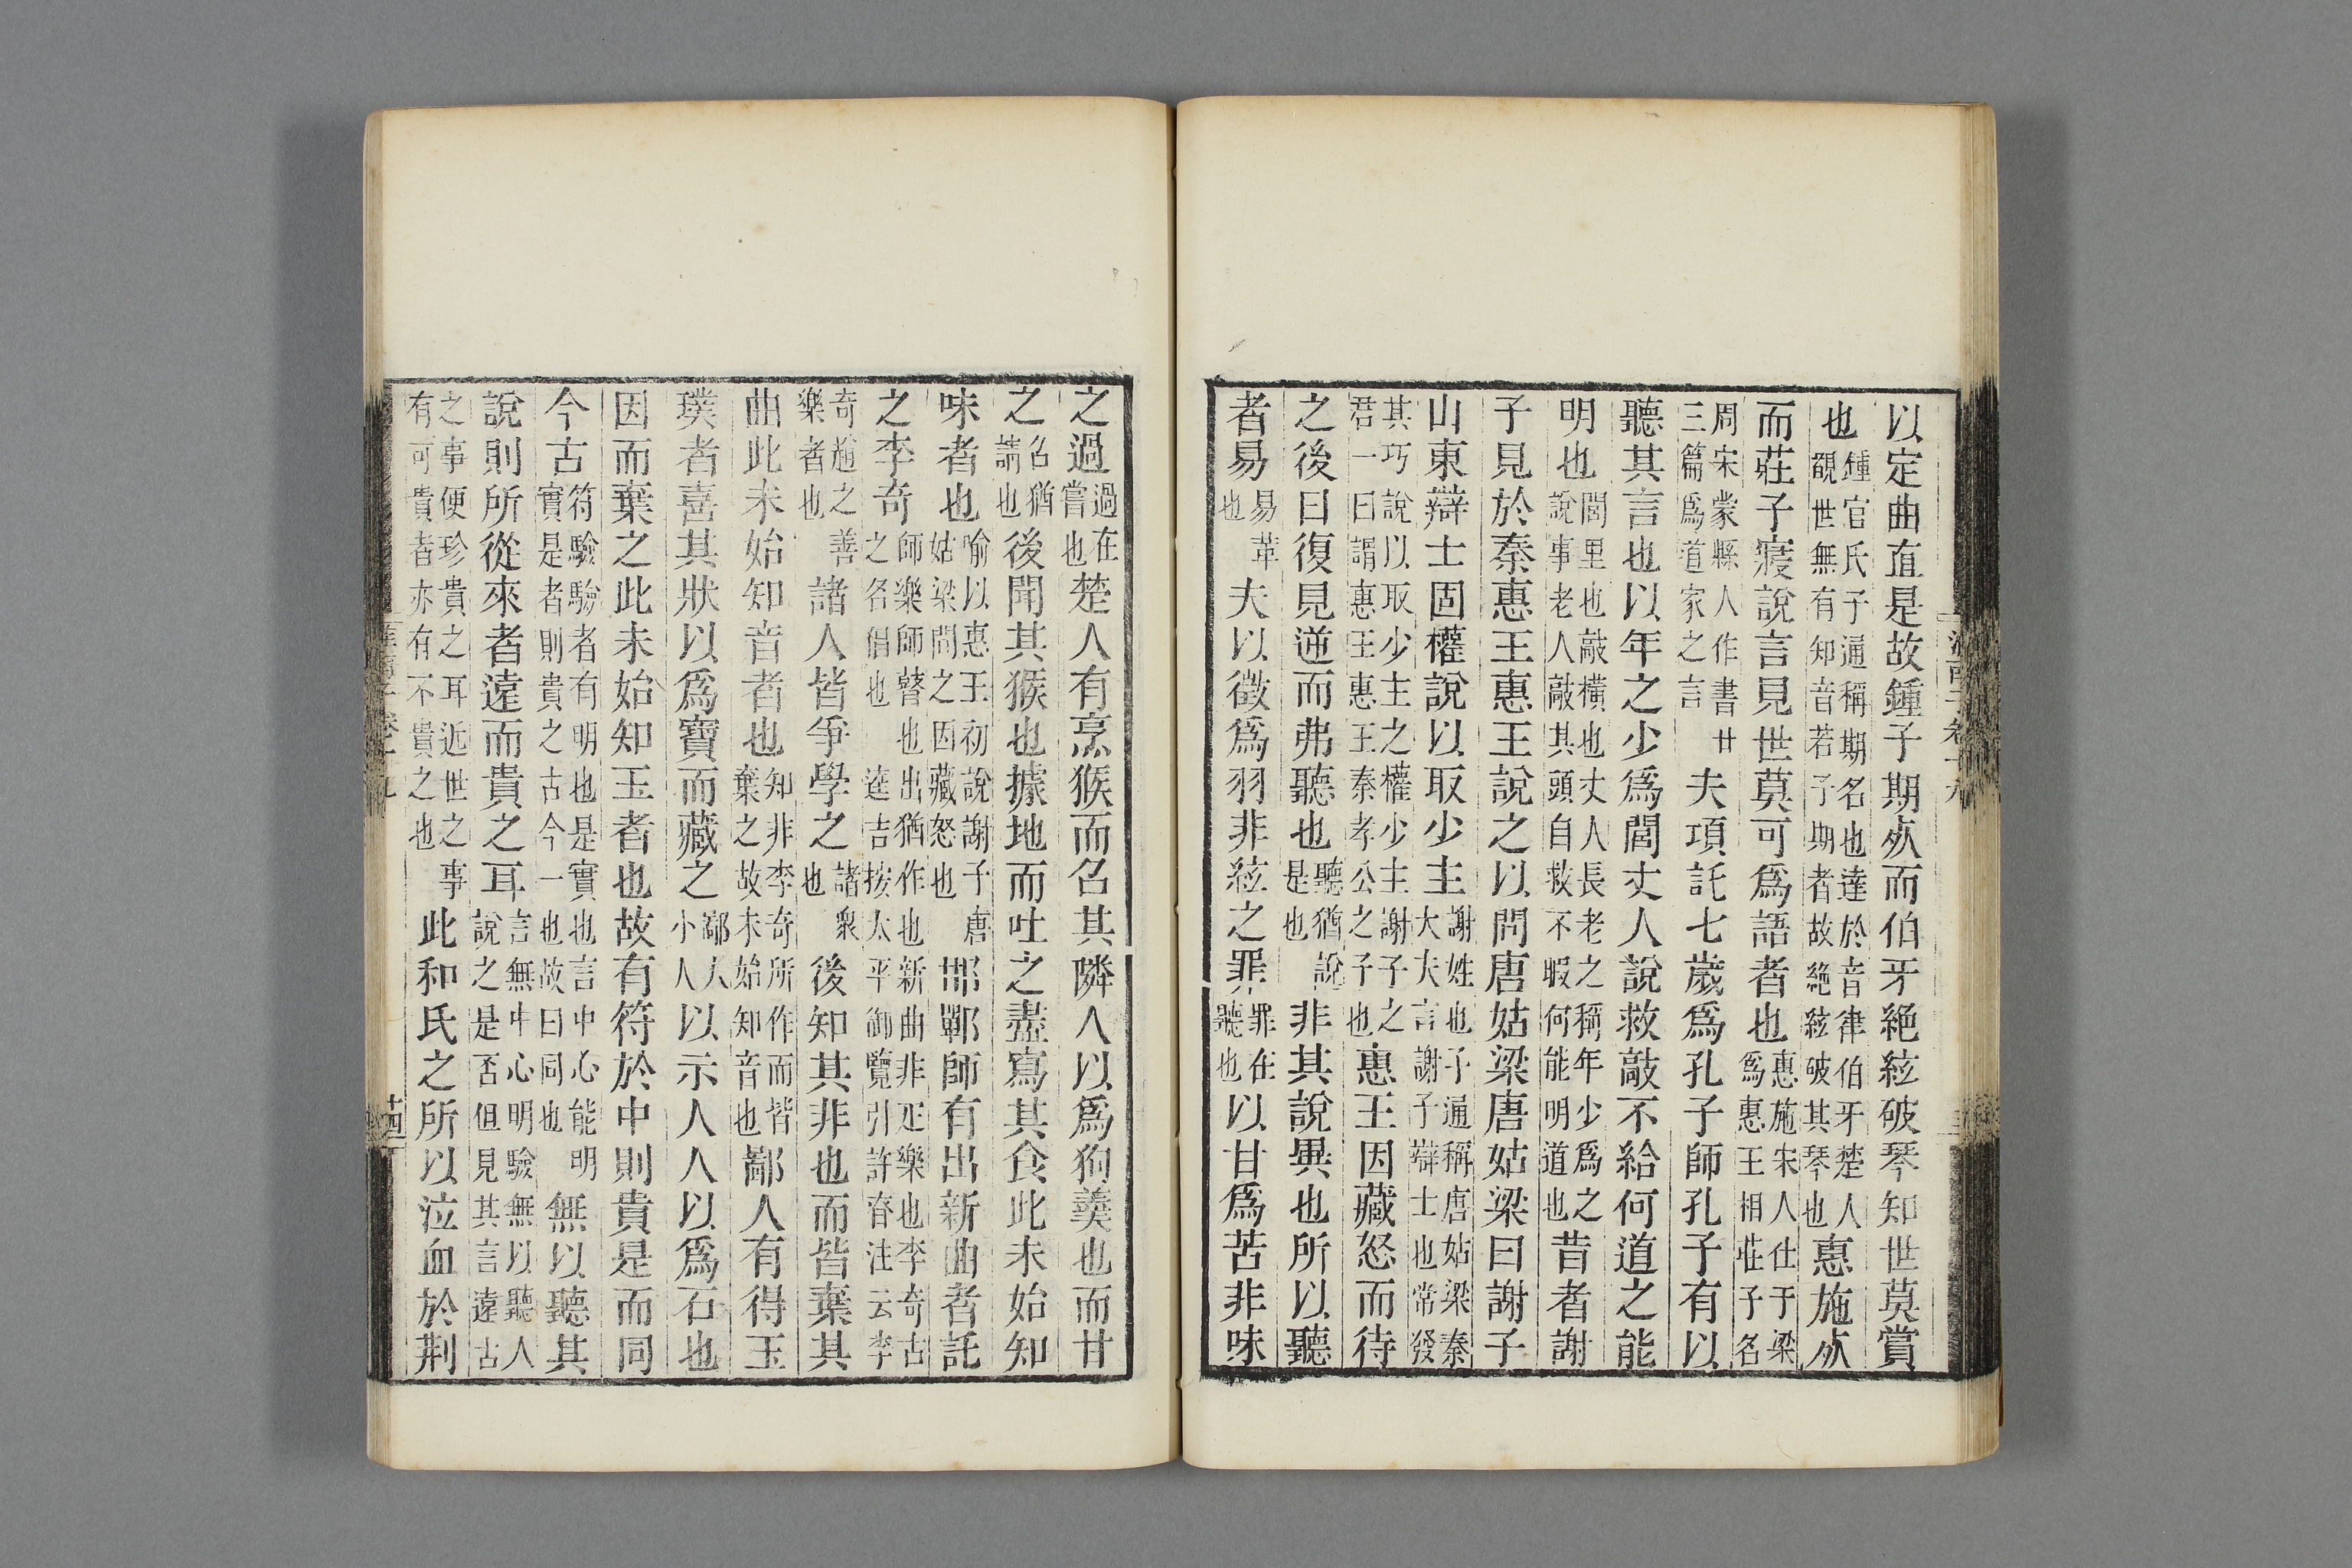 以定曲直是故鍾子期𣦸而伯牙絶絃破琴知世莫賞
也鍾官氏子通稱期名也達於音律伯牙楚人覩世無有知音若子期者故絶絃破其琴也惠施𣦸
而莊子寢說言見世莫可爲語者也惠施宋人仕于梁爲惠王相莊子名
周宋蒙縣人作書廿三篇爲道家之言夫項託七歲爲孔子師孔子有以
聽其言也以年之少爲閭丈人說救敲不給何道之能
明也閭里也敲橫也丈人長老之稱年少爲之說事老人敲其頭自救不暇何能明道也昔者謝
子見於秦惠王惠王說之以問唐姑梁唐姑梁曰謝子
山東辯士固權說以取少主謝姓也子通稱唐姑梁秦大夫言謝子辯士也常發
其巧說以取少主之權少主謝子之君一曰謂惠王惠王秦孝公之子也惠王因藏怒而待
之後日復見逆而弗聽也聽猶說是也非其說異也所以聽
者易易革也夫以徵爲羽非絃之罪罪在聽也以甘爲苦非味
淮南子卷十九
之過過在嘗也楚人有烹猴而召其隣人以爲狗羹也而甘
之召猶請也後聞其猴也據地而吐之盡寫其食此未始知
味者也喻以惠王初說謝子唐姑梁問之因藏怒也邯鄲師有出新曲者託
之李奇師樂師瞽也出猶作也新曲非正樂也李奇古之名倡也達吉按太平御覽引許昚注云李
奇趙之善樂者也諸人皆爭學之諸衆也後知其非也而皆棄其
曲此未始知音者也知非李奇所作而皆棄之故未始知音也鄙人有得玉
璞者喜其狀以爲寶而藏之鄙人小人以示人人以爲石也
因而棄之此未始知玉者也故有符於中則貴是而同
今古符驗驗者有明也是實也言中心能明實是者則貴之古今一也故曰同也無以聽其
說則所從來者遠而貴之耳言無中心明驗無以聽人說之是否但見其言遠古
之事便珍貴之耳近世之事有可貴者亦有不貴之也此和氏之所以泣血於荆